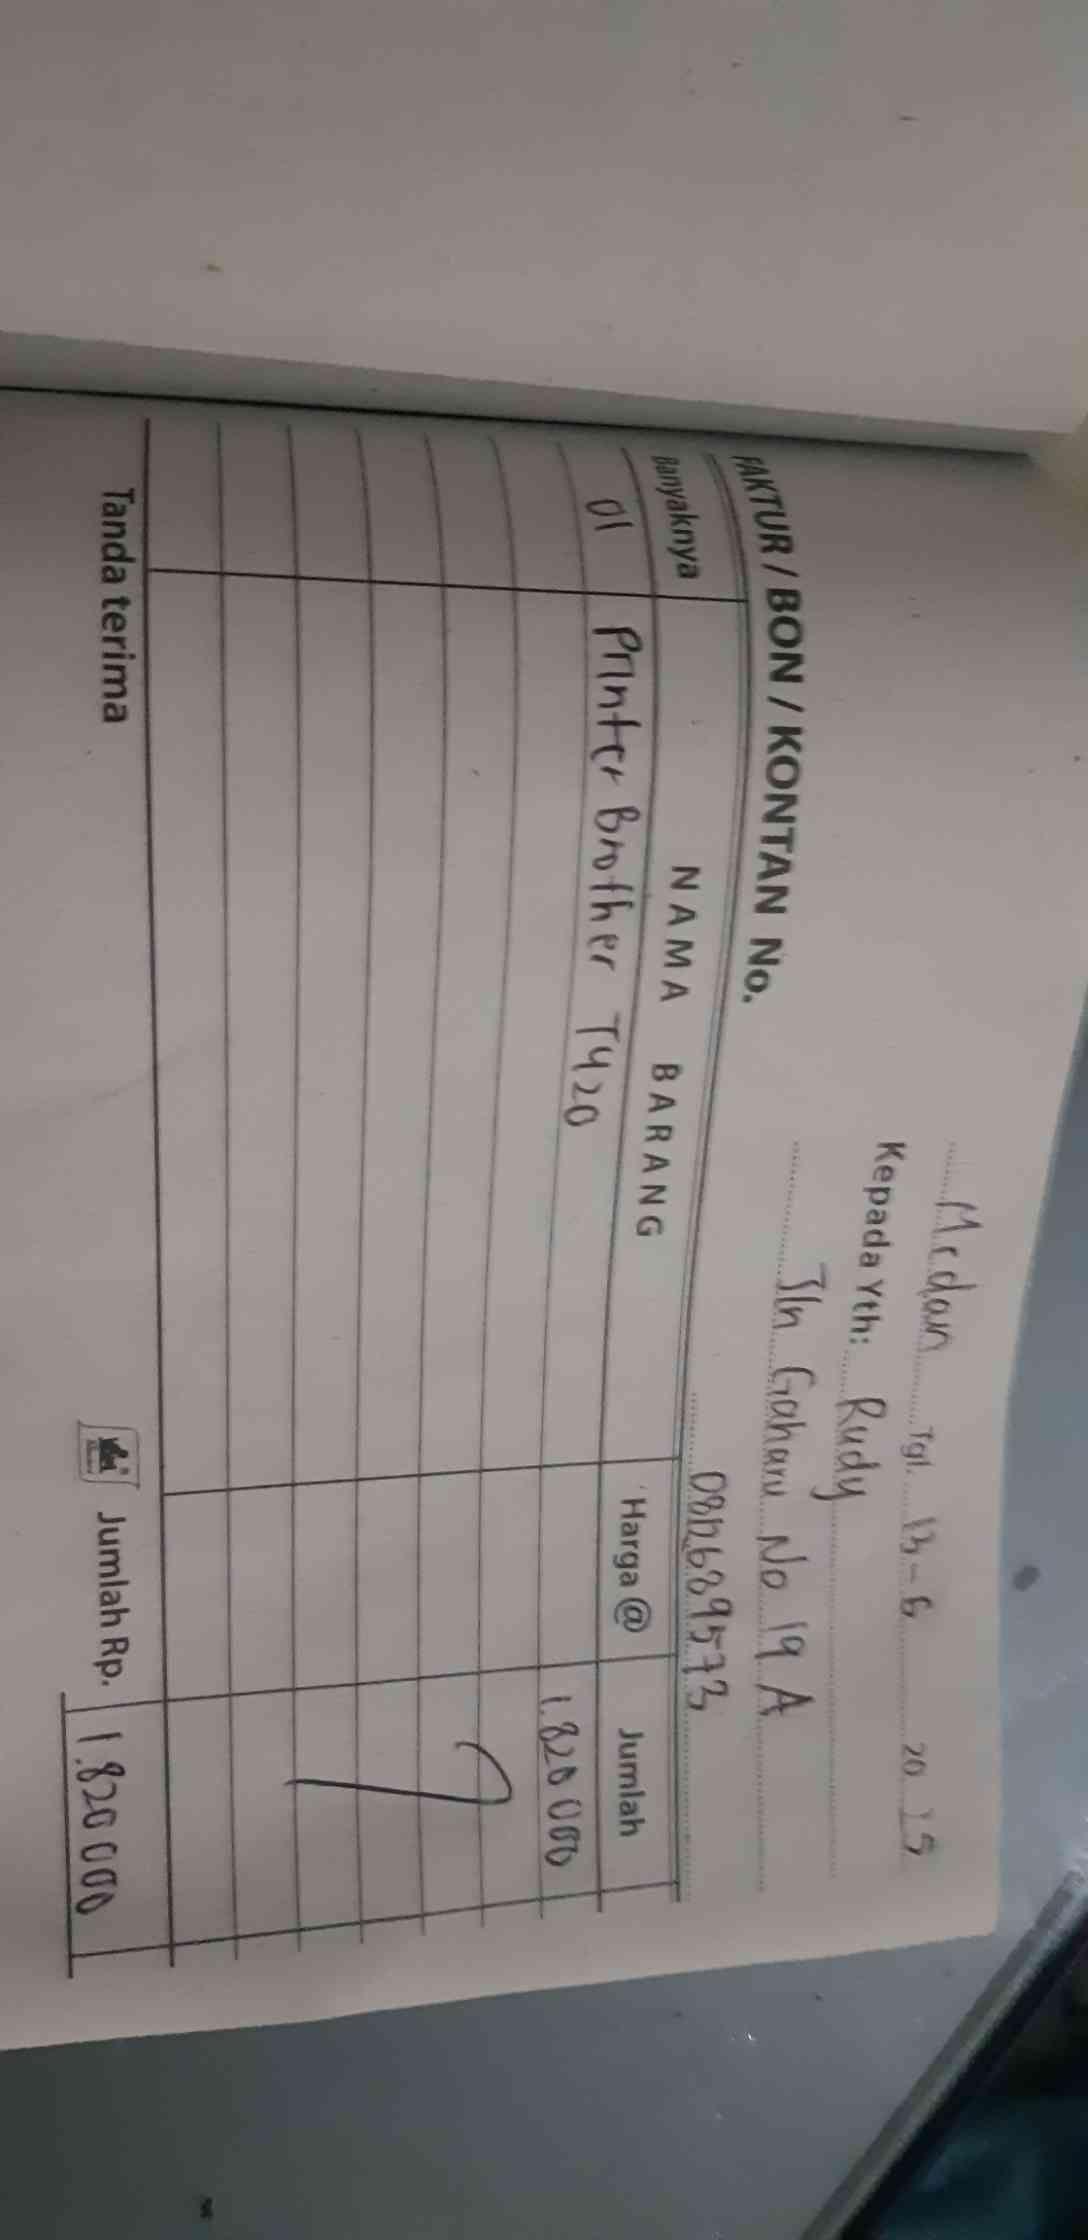 Medan Tgl. 13-6 20 25
Kepada Yth: Rudy
Jln Gaharu No 19 A
FAKTUR / BON / KONTAN No.
Banyaknya NAMA BARANG Harga @ Jumlah
01 Printer Brother T420 1.820 000
Tanda terima Jumlah Rp. 1.820 000